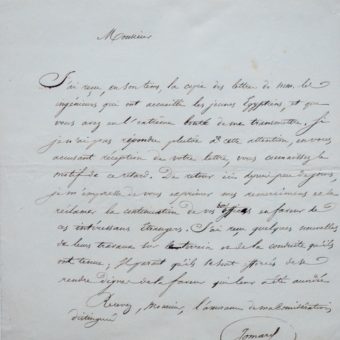 Monsieur
J'ai reçu, en son tems, la copie des lettres de mm. les
ingénieurs qui ont accueilli les jeunes Egyptiens, et que
vous avez eu l'extrême bonté de me transmettre. Si
je n'ai pas répondu plutôt à cette attention, en vous
accusant réception de votre lettre, vous connaissez le
motif de ce retard. De retour ici depuis peu de jours,
je m'empresse de vous exprimer mes remercimens et de
réclamer la continuation de vos offices en faveur de
ces intéressans étrangers. J'ai reçu quelques nouvelles
de leurs travaux sur le terrain et de la conduite qu'ils
ont tenue; il parait qu'ils se sont efforcés de se
rendre dignes de la faveur qui leur a été accordée
Recevez, Monsieur, l'assurance de ma considération
distinguée
Jomard